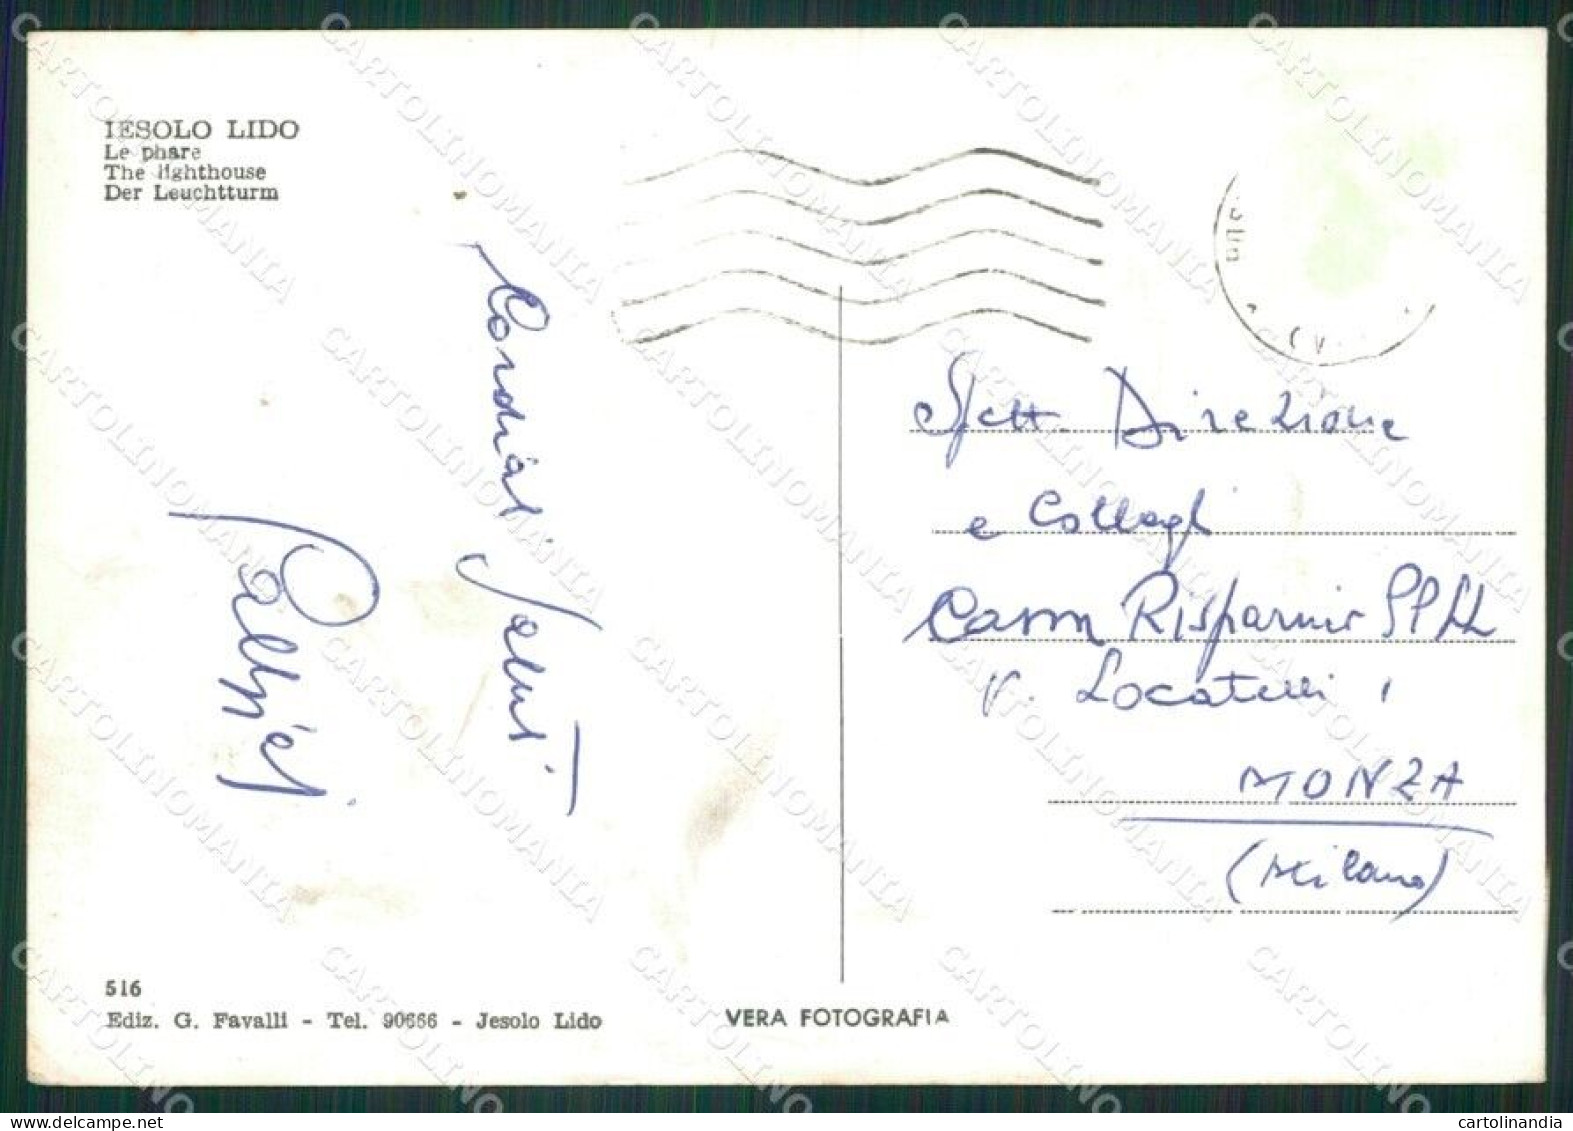 IESOLO LIDO
Le phare
The lighthouse
Der Leuchtturm
Cordiali saluti
Spett. Direzione
e Colleghi
Cassa Risparmio PP LL
V. Locatelli 1
MONZA
(Milano)
516
Ediz. G. Favalli - Tel. 90666 - Jesolo Lido
VERA FOTOGRAFIA
CARTOLINOMANIA
cartolinandia